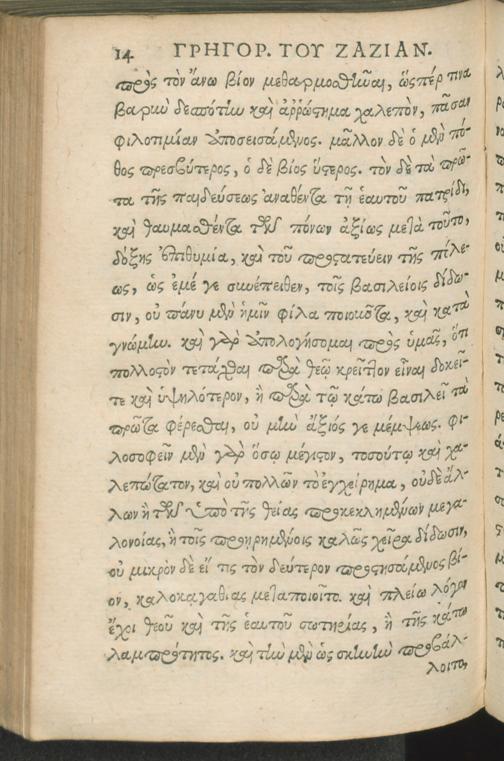 14 ΓΡΗΓΟΡ. ΤΟΥ ΖΑΖΙΑΝ.
πρὸς τὸν ἄνω βίον μεθαρμοσθῆναι, ὥσπέρ τινα
βαρεῖαν δεσπότιν καὶ ἀῤῥώστημα χαλεπὸν, πᾶσαν
φιλοτιμίαν ἀποσεισάμενος. μᾶλλον δὲ ὁ μὲν πό-
θος πρεσβύτερος, ὁ δὲ βίος ὕστερος. τὸν δὲ τὰ πρῶ-
τα τῆς παιδεύσεως ἀναθέντα τῇ ἑαυτοῦ πατρίδι,
καὶ θαυμασθέντα τῶν πόνων ἀξίως μετὰ τοῦτο,
δόξης ἐπιθυμία, καὶ τοῦ προστατεύειν τῆς πόλε-
ως, ὡς ἐμέ γε συνέπειθεν, τοῖς βασιλείοις δίδω-
σιν, οὐ πάνυ μὲν ἡμῖν φίλα ποιοῦντα, καὶ κατὰ
γνώμην. καὶ γὰρ ἀπολογήσομαι πρὸς ὑμᾶς, ὅτι
πολλοστὸν τετάχθαι παρὰ θεῷ κρεῖττον εἶναι δοκεῖ-
τε καὶ ὑψηλότερον, ἢ παρὰ τῷ κάτω βασιλεῖ τὰ
πρῶτα φέρεσθαι, οὐ μὴν ἄξιός γε μέμψεως. φι-
λοσοφεῖν μὲν γὰρ ὅσῳ μέγιστον, τοσούτῳ καὶ χα-
λεπώτατον, καὶ οὐ πολλῶν τὸ ἐγχείρημα, οὐδὲ ἄλ-
λων ἢ τῶν ὑπὸ τῆς θείας προκεκλημένων μεγα-
λονοίας, ἣ τοῖς προῃρημένοις καλῶς χεῖρα δίδωσιν,
οὐ μικρὸν δὲ εἴ τις τὸν δεύτερον προστησάμενος βί-
ον, καλοκαγαθίας μεταποιοῖτο. καὶ πλείω λόγον
ἔχοι θεοῦ καὶ τῆς ἑαυτοῦ σωτηρίας, ἢ τῆς κάτω
λαμπρότητος. καὶ τὴν μὲν ὡς σκηνὴν προβάλ-
λοιτο,